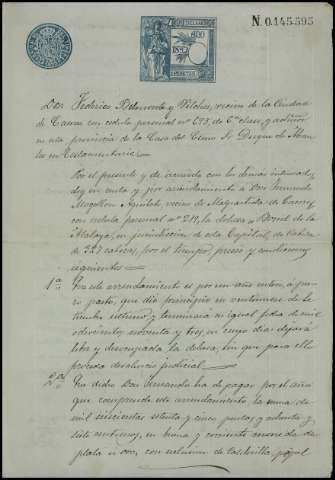 N. 0.145.595
1892
Don Federico Belmonte y Vilches, vecino de la Ciudad
de Caceres con cedula personal nº 273, de 6ª clase, y administ
en esta provincia de la Casa del Exmo Sr Duque de
en Testamentaria.
Por el presente y de acuerdo con los demas
doy en renta y por arrendamiento a Don Fernando
Mogollon vecino de de Caceres,
con cedula personal nº la dehesa Boral de la
Atalaya, en jurisdiccion de esta Capital, de cabida
de 327 cabezas, por el tiempo, precio y condiciones
siguientes
1ª Este arrendamiento es por un año entero, á puro
pasto, que dio principio en veintinueve de Se
tiembre último y terminará en igual fecha de mil
ochocientos noventa y tres, en cuyo dia dejará
libre y desocupada la dehesa, sin que para ello
preceda desahucio judicial.
2ª Que dicho Don Fernando ha de pagar por el año
que comprende este arrendamiento la suma de
mil seiscientas setenta y cinco pesetas y ochenta y
siete centimos, en buena y corriente moneda de
plata u oro, con exclusion de calderilla, papel